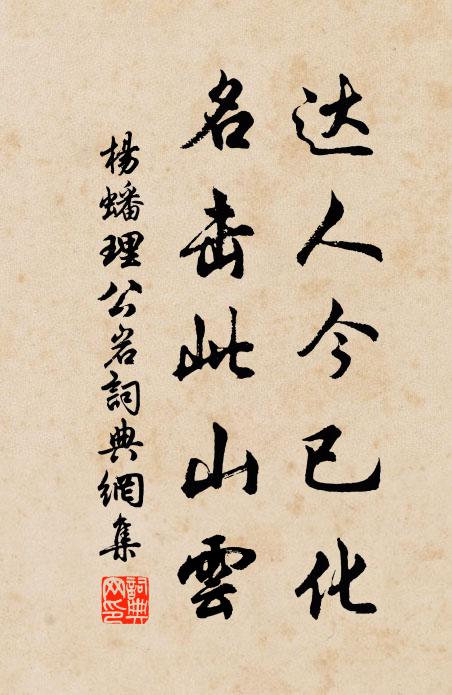 达人今已化
名击此山雲
楊蟠理公岩詞典網集
詞典
网印